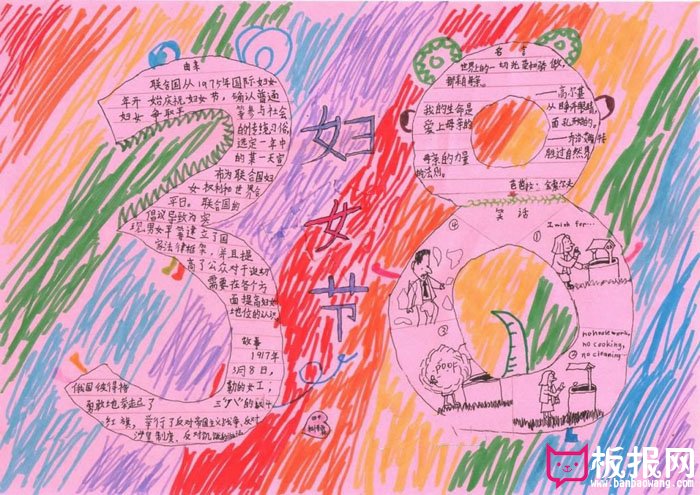 由来
联合国从1975年国际妇女
年开始庆祝妇女节，确认普通
妇女争取平等参与社会
的传统习俗，
选定一年中
的某一天宣
布为联合国妇
女权利和世界和
平日。联合国的
倡议导致为实
现男女平等建立了国
家法律框架，并且提
高了公众对于迫切
需要在各个方
面提高妇女
地位的认识。
故事
1917年
3月8日，
俄国彼得格
勒的女工，
勇敢地举起了
三"八"的
红旗，举行了反对帝国主义战争，反对
沙皇制度，反对饥饿的
妇
女
节
名言
世界上的一切光荣和骄傲，
都来自母亲。
——高尔基
我的生命是
从睁开眼睛，
爱上母亲的
面孔开始的。
——乔治
母亲的力量
胜过自然界
的法则。
芭芭拉·金索尔夫
笑话
④
I wish for...
①
③
POOF
no housework,
no cooking,
②
no cleaning
板报网
www.banbaowang.com